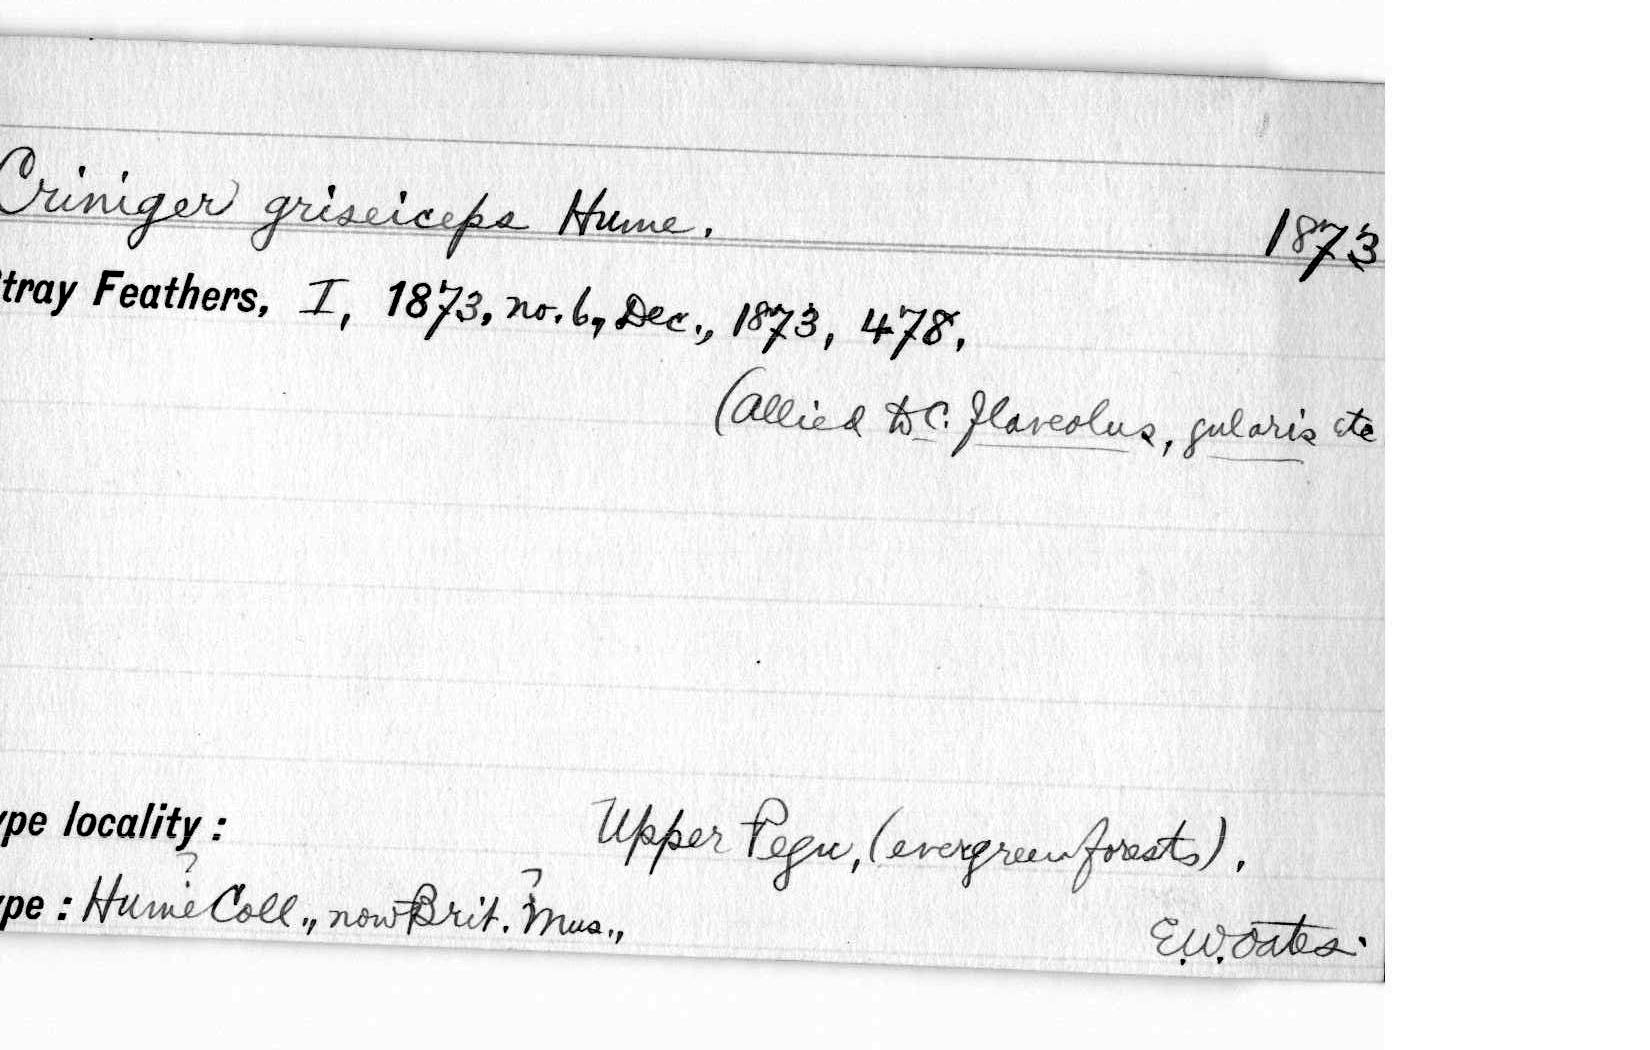 Criniger griseiceps Hume. 1873
tray Feathers, I, 1873, no. 6, Dec., 1873, 478,
(Allied to C. flaveolus, gularis etc
ype locality: Upper Pegu, (evergreen forests),
ype: Hume? Coll., now Brit.? Mus., E.W. Oates.